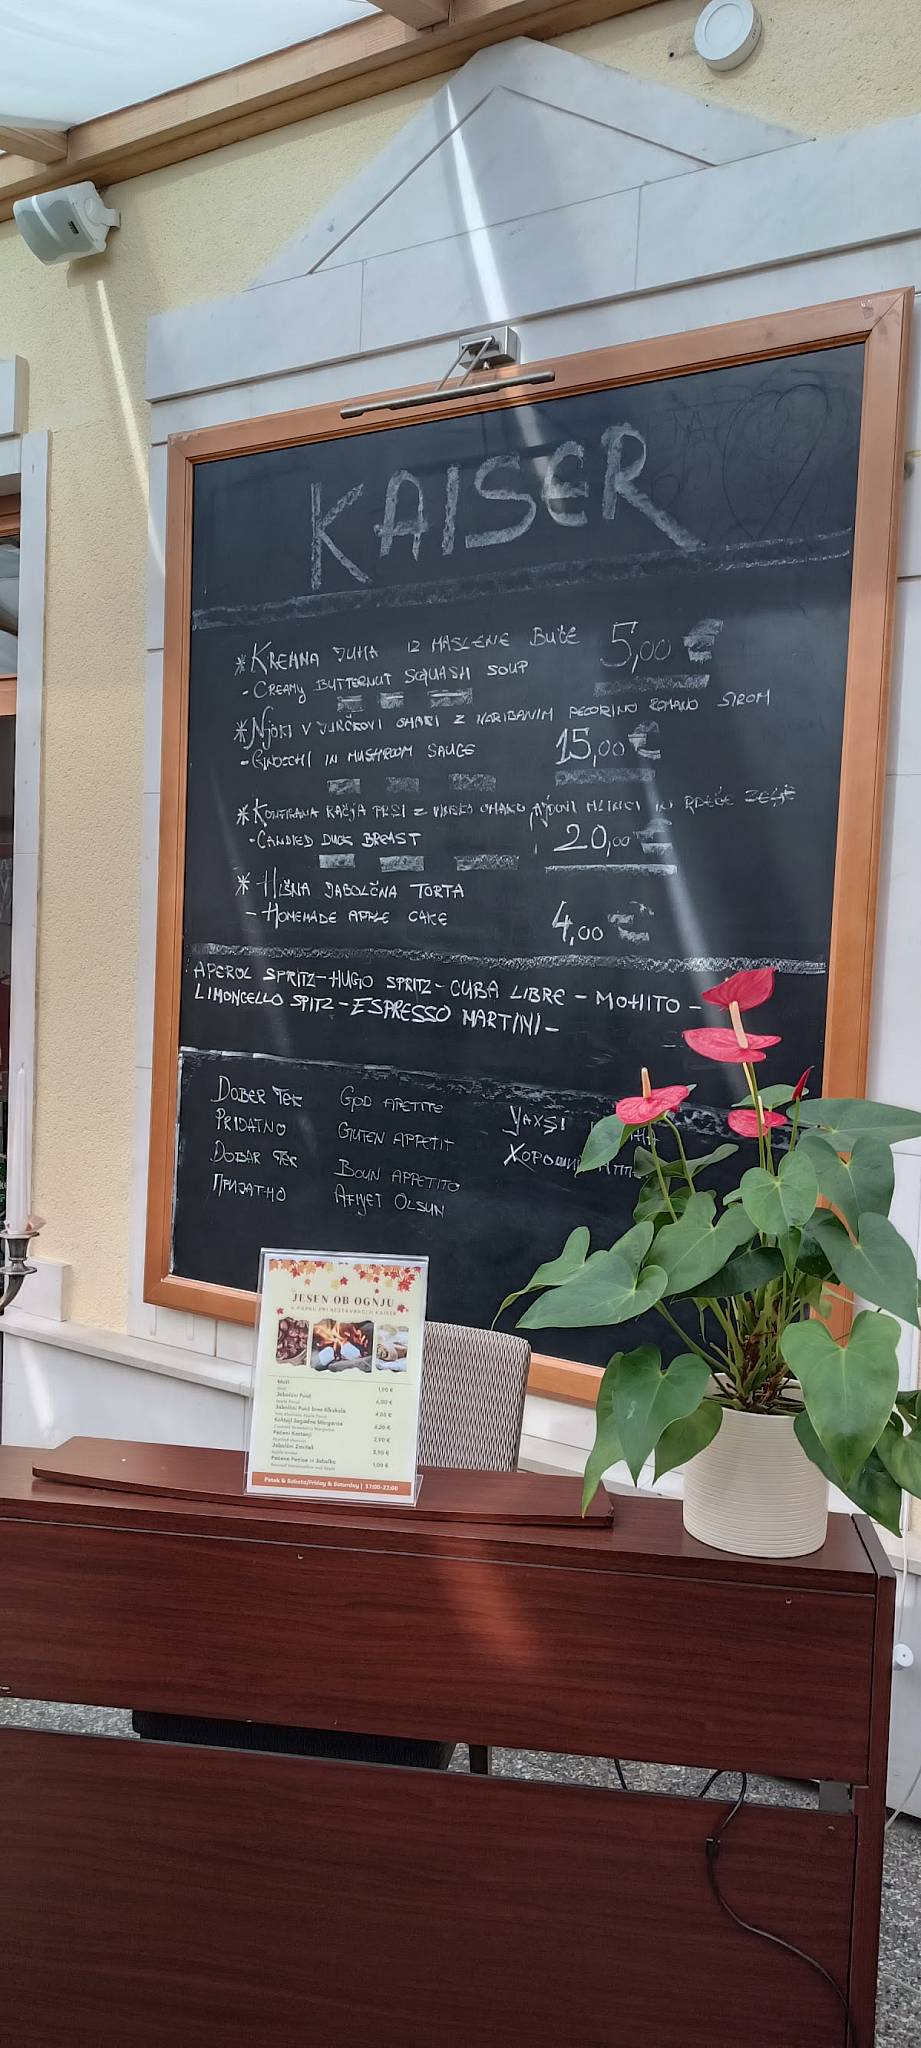 KAISER
*KREMNA JUHA IZ MASLENE BUČE 5,00 €
- CREAMY BUTTERNUT SQUASH SOUP
*NJOKI V JURČKOVI OMAKI Z NARIBANIM PECORINO ROMANO SIROM
- GNOCCHI IN MUSHROOM SAUCE 15,00 €
*KONFIRANA RAČJA PRSI Z VINSKO OMAKO MLINCI IN RDEČE ZELJE
- CANDIED DUCK BREAST 20,00 €
*HIŠNA JABOLČNA TORTA
- HOMEMADE APPLE CAKE 4,00 €
APEROL SPRITZ-HUGO SPRITZ-CUBA LIBRE - MOHITO -
LIMONCELLO SPITZ-ESPRESSO MARTINI-
DOBER TEK
PRIJATNO
DOBAR TEK
ПРИЈАТНО
GOD APETITE
GUTEN APPETIT
BOUN APPETITO
AFIYET OLSUN
YAXŞI
JESEN OB OGNJU
V PARKU PRI RESTAVRACIJI KAISER
Mošt 1,90 €
Jabolčni Punč
Apple Punch
Jabolčni Punč brez Alkohola
Koktajl Jagodna Margarita
Pečeni Kostanji
Jabolčni Zavitek
Petek & Sobota/Friday & Saturday | 17:00-22:00